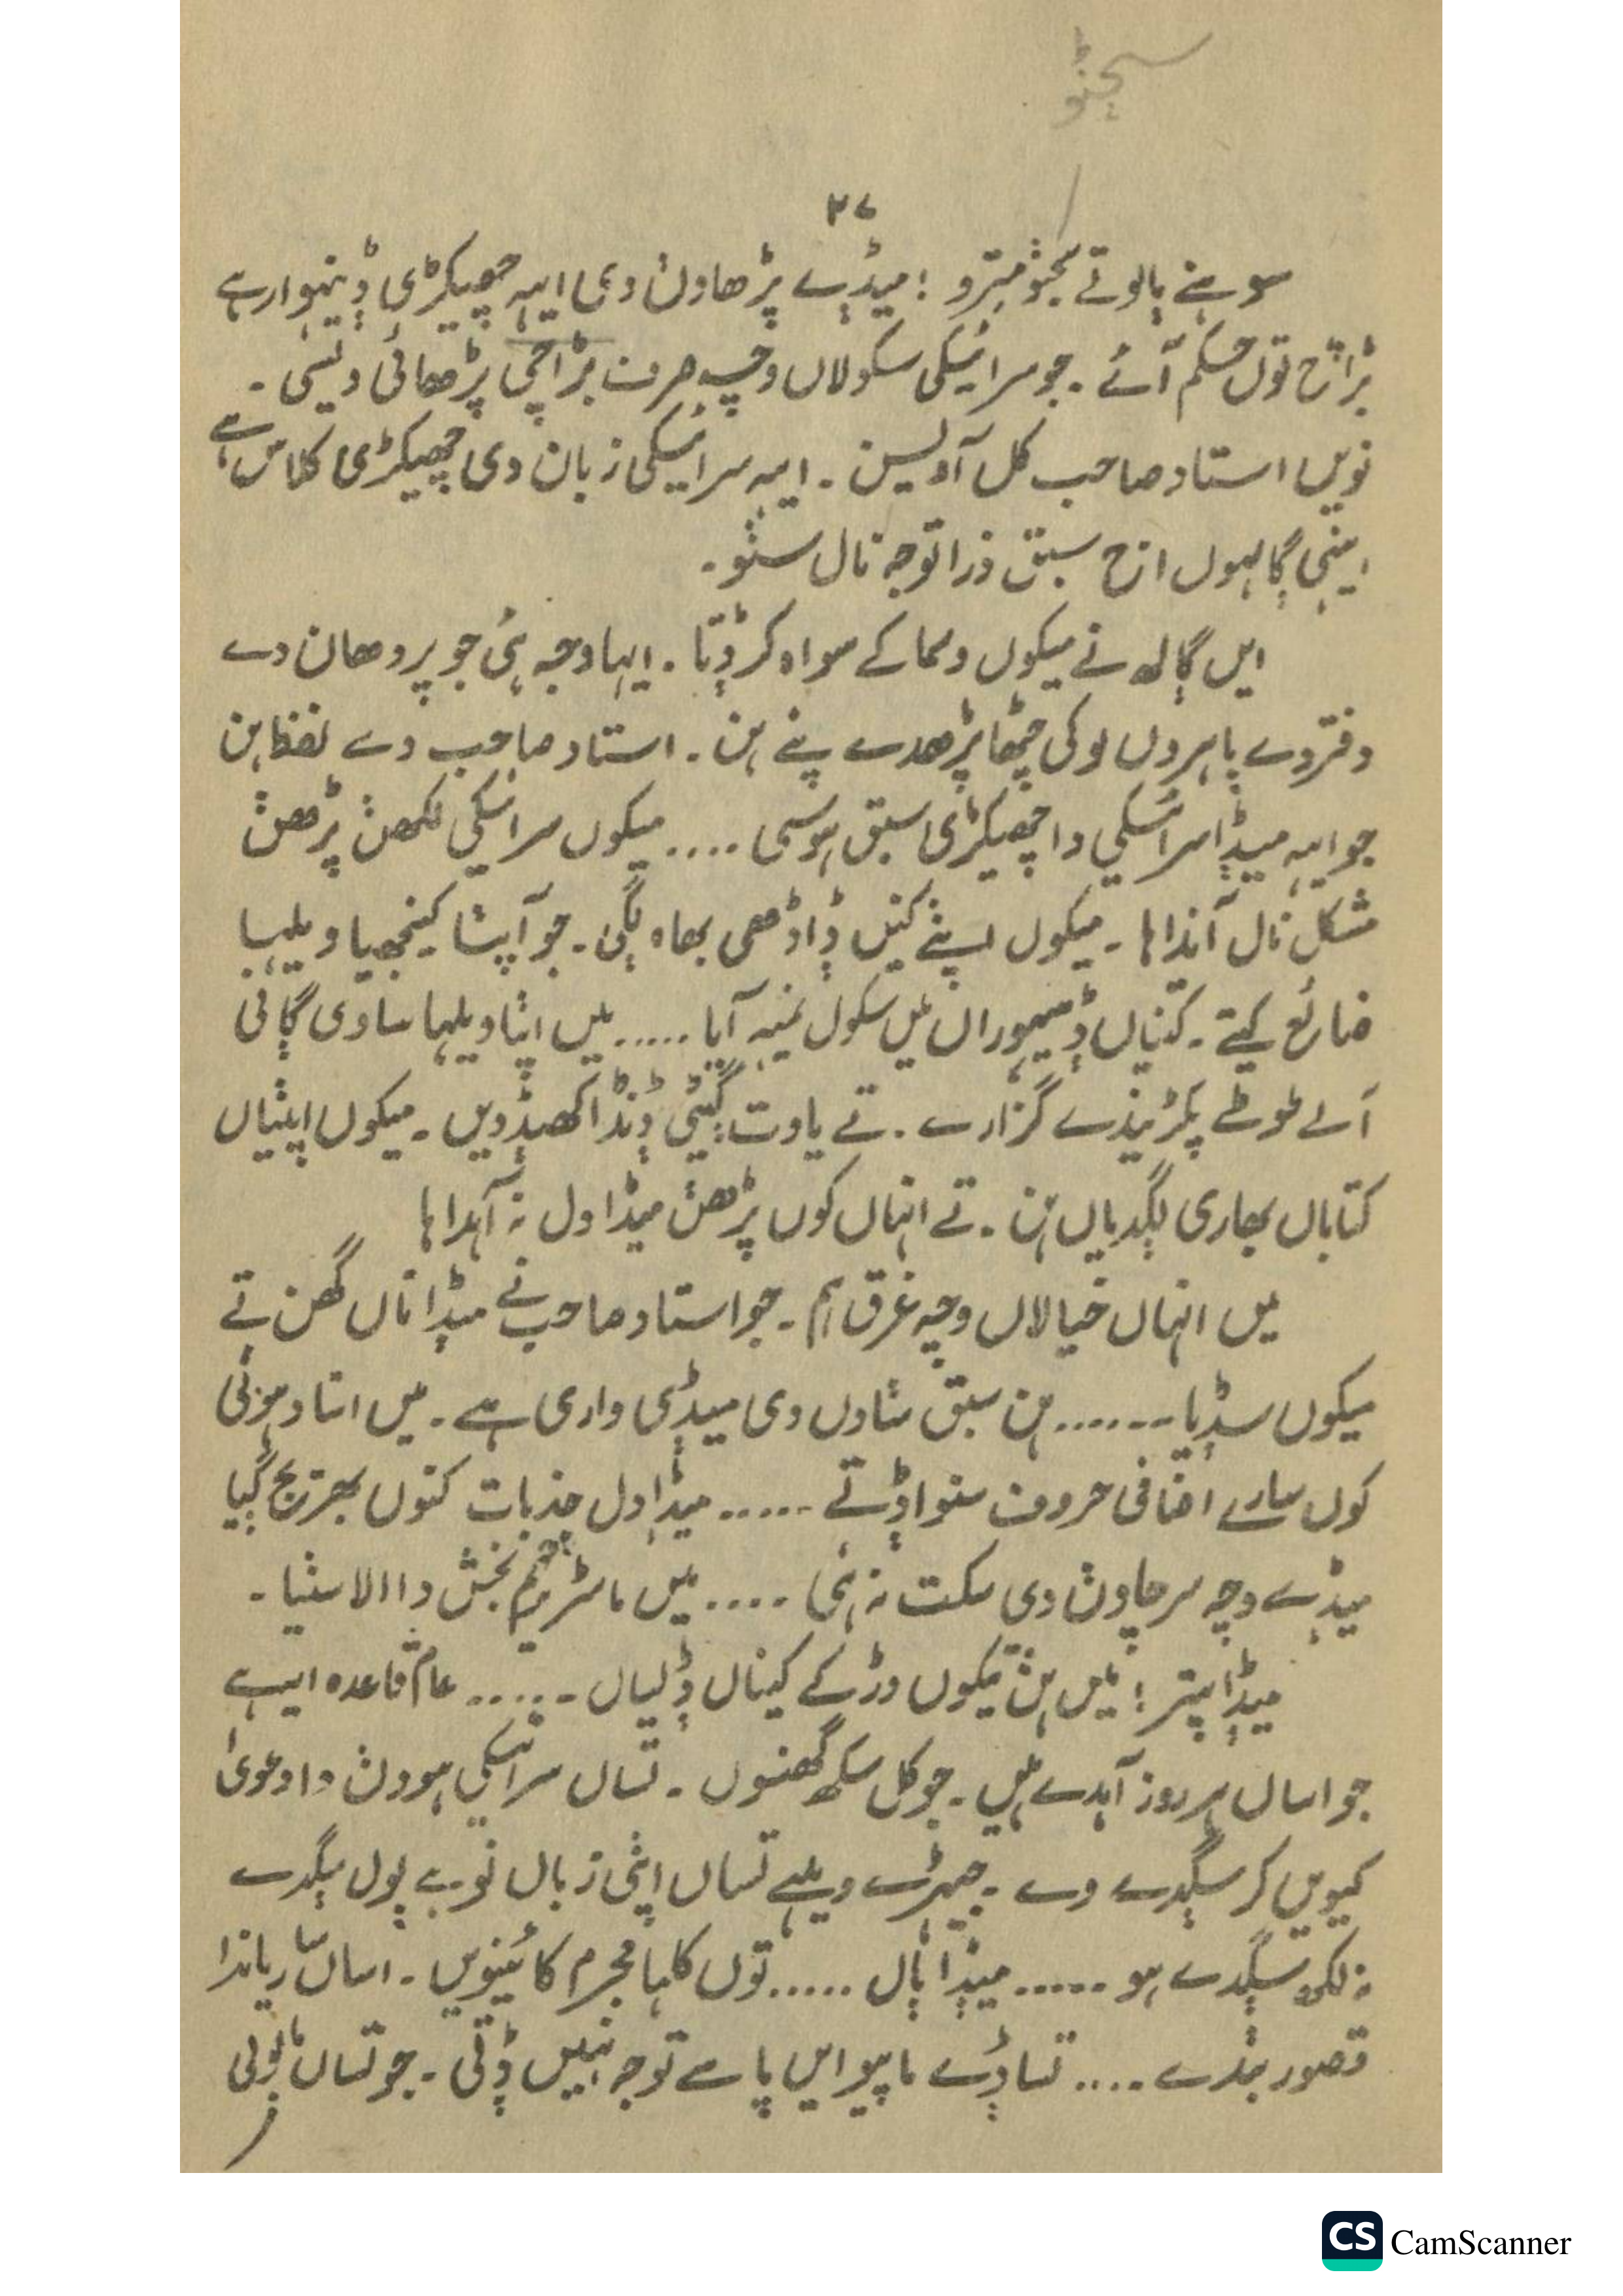 سجݨو
٣٧
سوہݨے ٻالو تے سجݨو مترو ! میڈے پڑھاوݨ دی ایہہ چھیکڑی ڈینہوار ہے
بڑانچ توں حکم آئے ۔ جو سرائیکی سکولاں وچہ صرف بڑانچی پڑھائی ویسی ۔
نویں استاد صاحب کل آ ویسن ۔ ایہہ سرائیکی زبان دی چھیکڑی کلاس ہے
اینہی ڳالہوں اݨج سبق ذرا توجہ نال سݨو ۔
ایں ڳالھ نے میکوں دھما کے سواہ کر ڈتا ۔ ایہا وجہ ہئی جو پردھان دے
دفتر دے ٻاہروں لوکی چٹھا پڑھدے پئے ہن ۔ استاد صاحب دے لفظ ہن
جو ایہہ میڈا سرائیکی دا چھیکڑی سبق ہوسی .... میکوں سرائیکی لکھݨ پڑھݨ
مشکل نال آندا ہا ۔ میکوں اپݨے کنیں ڈاڈھی بھاہ لڳی ۔ جو آپݨا کینجھیا ویلہا
ضائع کیتے ۔ کتیاں ڈیہوراں میں سکول نمہہ آیا ..... میں اپݨا ویلہا ساوی ڳانی
آلے طوطے پکڑیندے گزارے ۔ تے یاوت گیٹی ڈنڈا کھیڈدیں ۔ میکوں اپݨیاں
کتاباں بھاری لڳدیاں ہن ۔ تے انہاں کوں پڑھݨ میڈا دل نہ آہدا ہا
میں انہاں خیالاں وچہ غرق ہم ۔ جو استاد صاحب نے میڈا ناں گھن تے
میکوں سڈیا ....... ہن سبق سݨاوݨ دی میڈی واری ہے ۔ میں استاد ہوݨی
کوں سارے اضافی حروف سݨوا ڈتے ...... میڈا دل جذبات کنوں بھرتج ڳیا
میڈے وچہ سر چاوݨ دی سکت نہ ہئی .... میں ماسٹر میم بخش دا الا سݨیا ۔
میڈا پتر ! میں ہݨ تیکوں دڑکے کیناں ڈلیاں ...... عام قاعدہ ایہے
جو اساں ہر روز آہدے ہیں ۔ جو کل سکھ گھنسوں ۔ تساں سرائیکی ہووݨ دا دعویٰ
کیویں کر سڳدے وے ۔ جیہڑے ویلہے تساں اپݨی زباں نوہے ٻول سڳدے
نہ لکھ سڳدے ہو ...... میڈا ٻال ...... توں کلہا مجرم کائینویں ۔ اساں ساریاں دا
قصور بݨدے .... تساڈے ماپیو ایں پاسے توجہ نہیں ڈتی ۔ جو تساں ٻولی